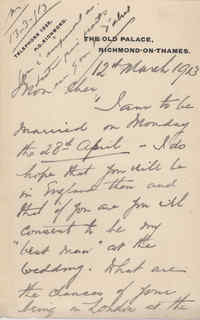 13-3-13
TELEPHONE 1358,
P.O. RICHMOND.
THE OLD PALACE,
RICHMOND-ON-THAMES.
12th March 1913
Mon Cher,
I am to be
married on Monday
the 28th April - I do
hope that you will be
in England then and
that if you are you will
consent to be my
"best man" at the
wedding. What are
the chances of your
being in London at the